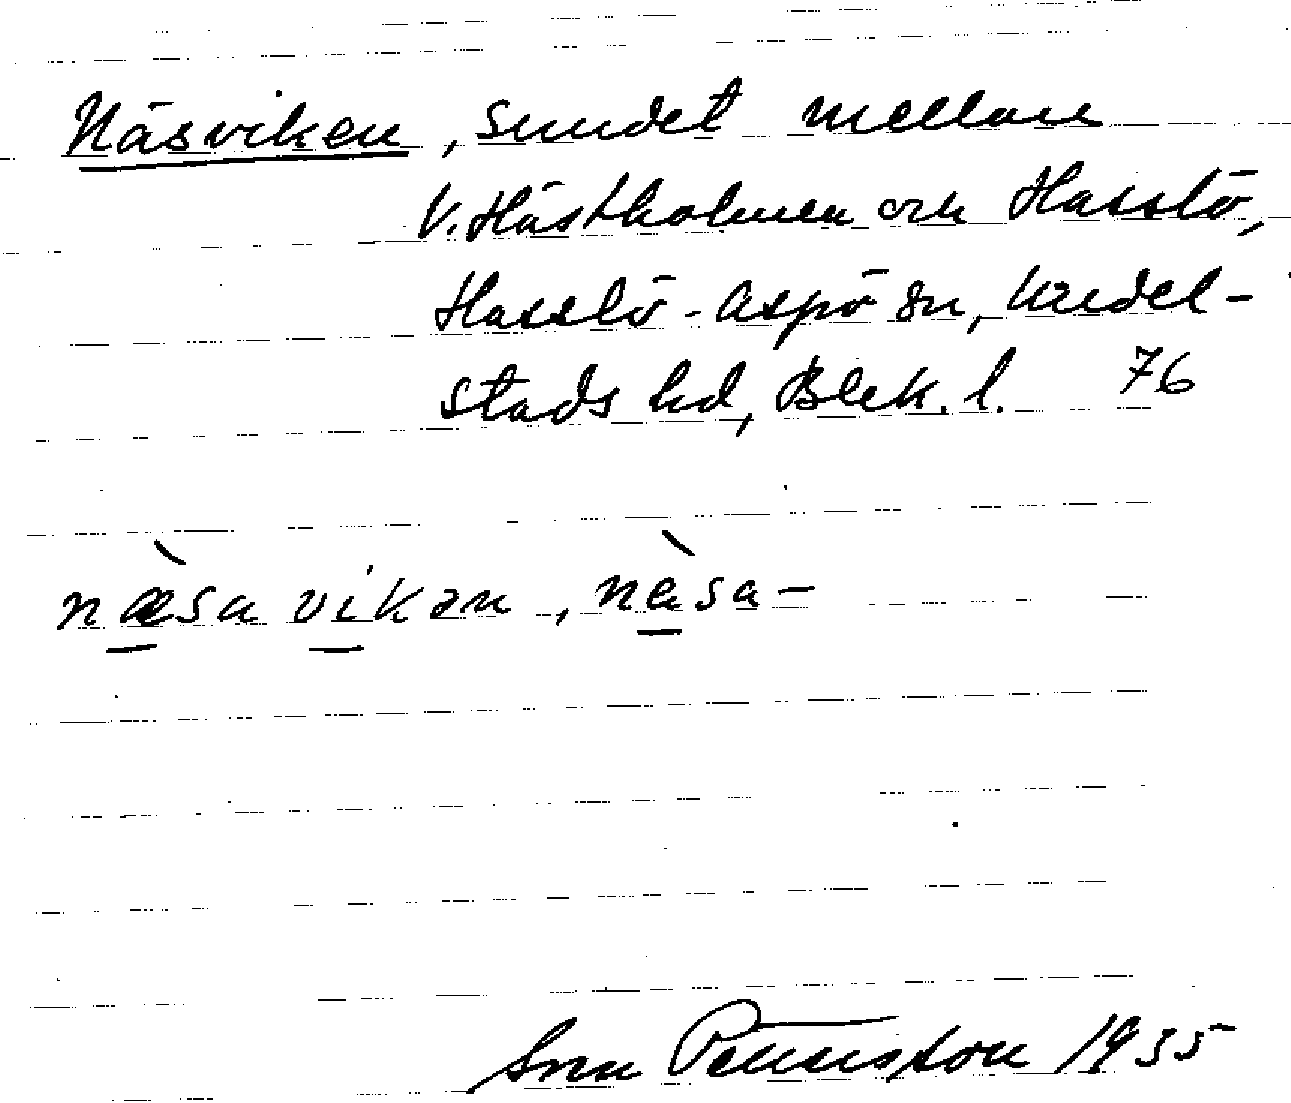 Näsviken, sundet mellan
V. Hästholmen och Hasslö,
Hasslö-Aspö sn, Medel-
stads hd, Blek. l. 76
næ̀sa vikən, nèsa-
Sven Petersson 1935